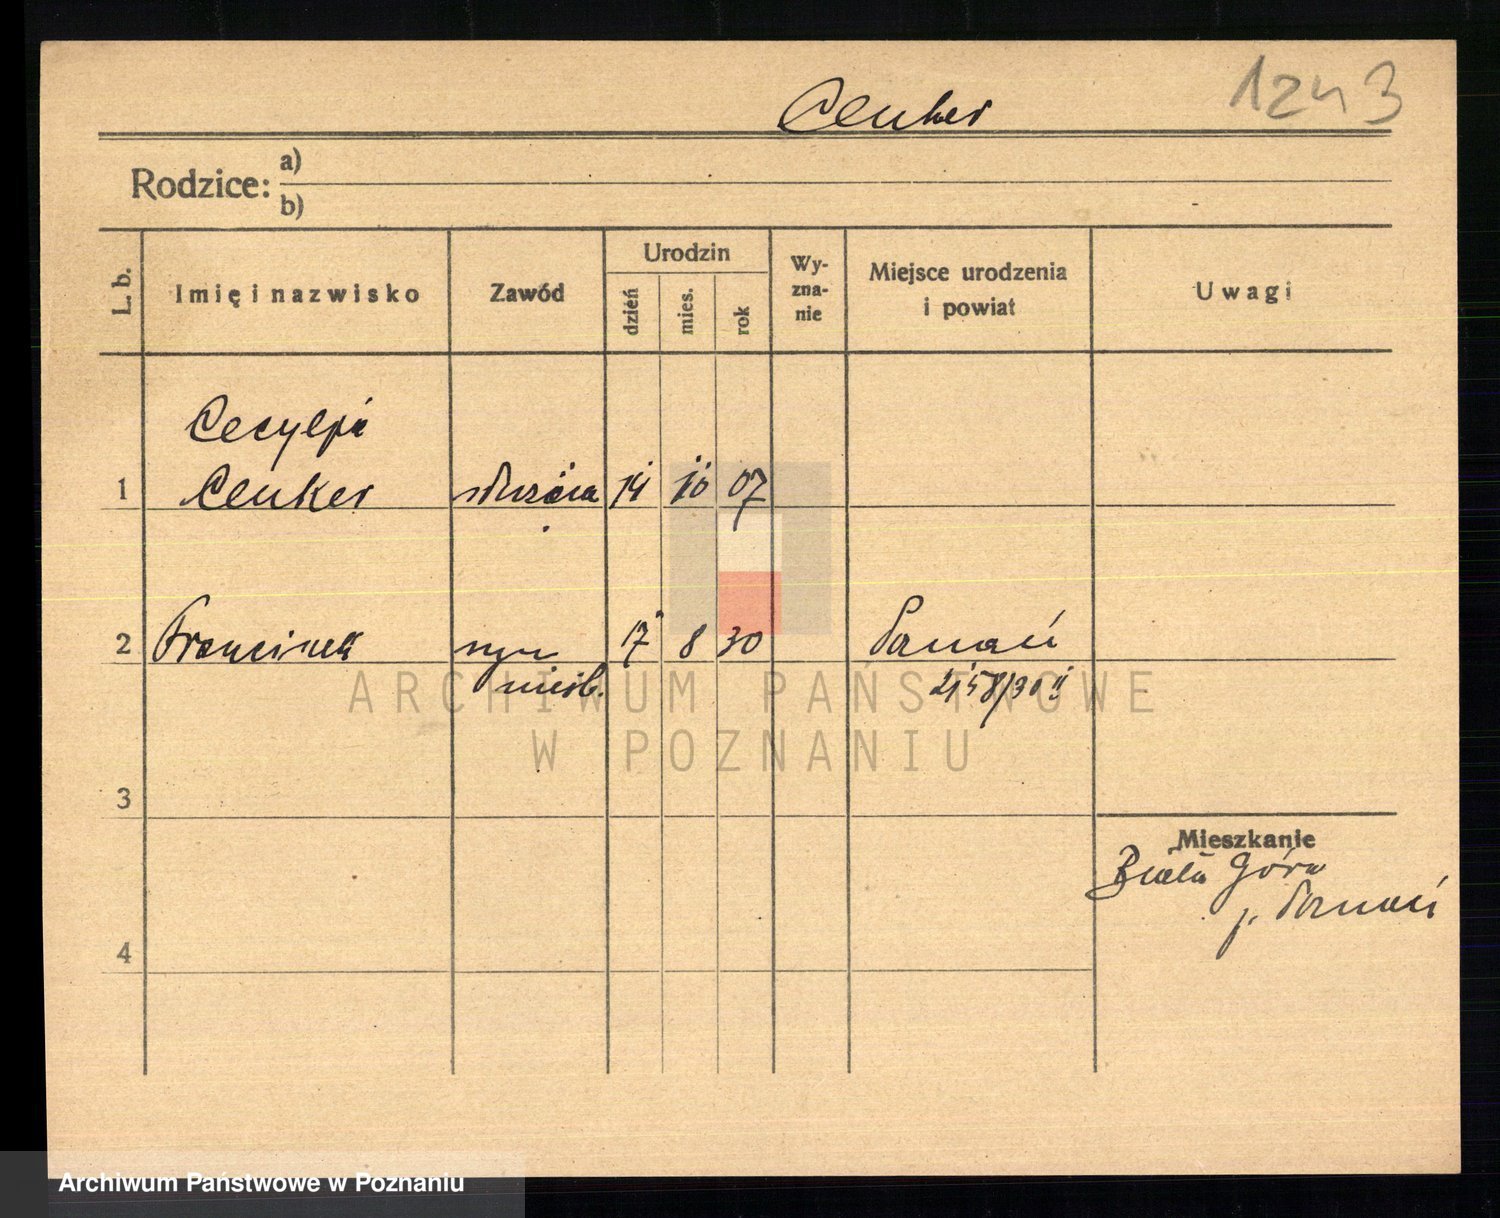 1243
Cenker
Rodzice: a)
b)
L. b.
Imię i nazwisko
Zawód
Urodzin
dzień
mies.
rok
Wy-
zna-
nie
Miejsce urodzenia
i powiat
Uwagi
Cecylja
1 Cenker służąca 14 10 07
2 Franciszek syn 17 8 30 Poznań
nieśl. 2158/30
ARCHIWUM PAŃSTWOWE
W POZNANIU
3
Mieszkanie
Biała Góra
p. Poznań
4
Archiwum Państwowe w Poznaniu